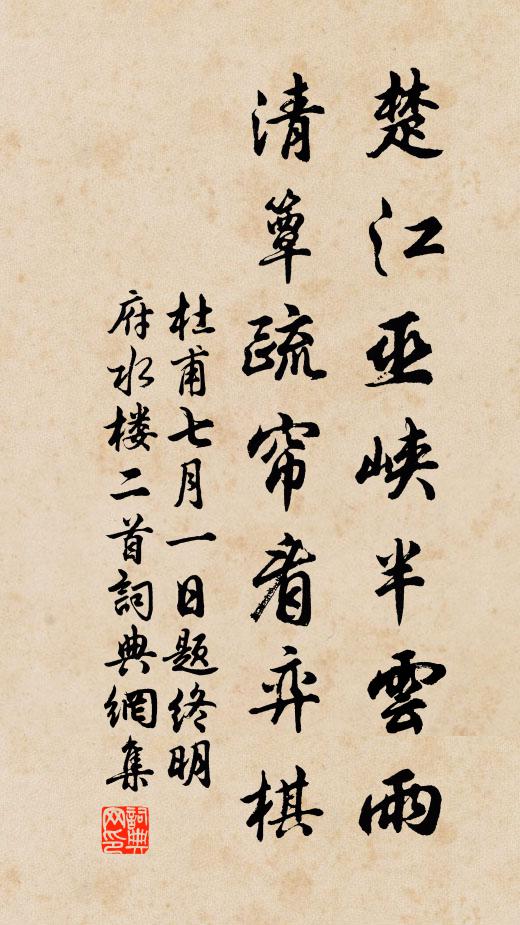 楚江巫峡半雲雨
清簟疏帘看弈棋
杜甫七月一日题终明
府水楼二首詞典網集
詞典网印